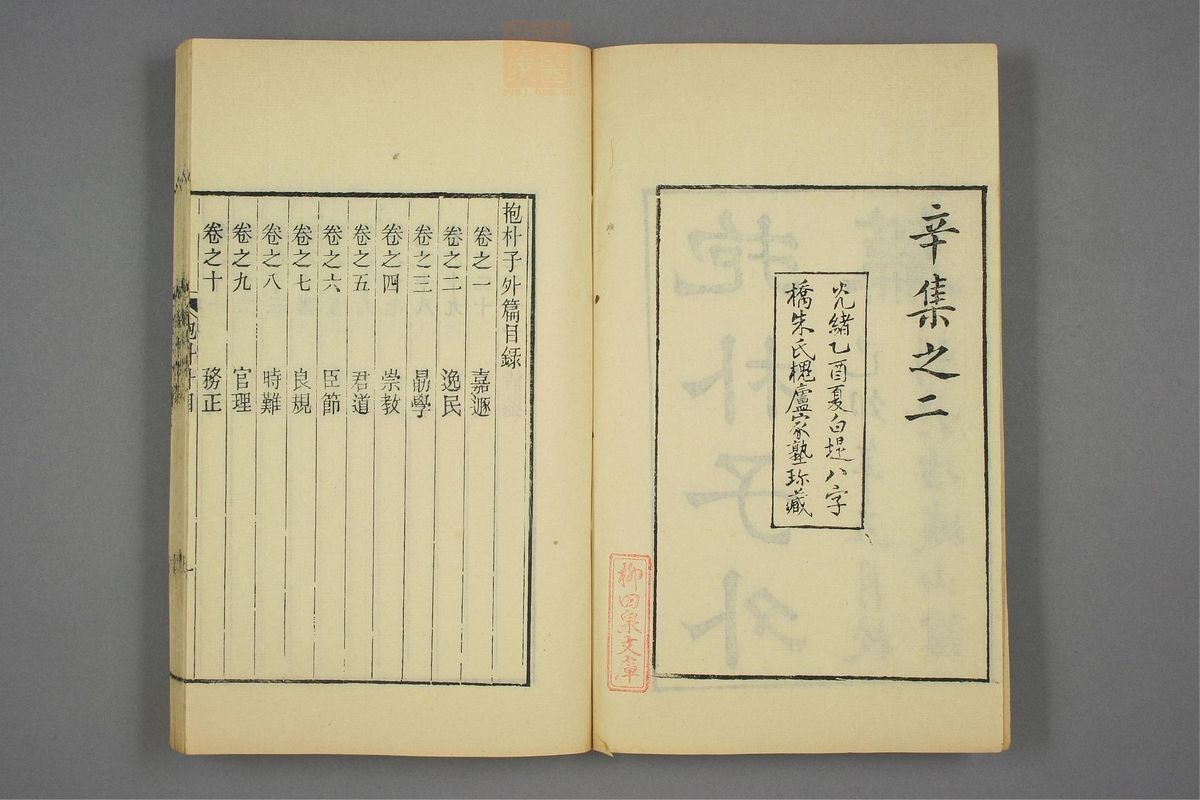 辛集之二
光緒乙酉夏白堤八字
橋朱氏槐廬家塾珎藏
柳田泉文庫
抱朴子外篇目録
卷之一 嘉遯
卷之二 逸民
卷之三 勗學
卷之四 崇教
卷之五 君道
卷之六 臣節
卷之七 良規
卷之八 時難
卷之九 官理
卷之十 務正